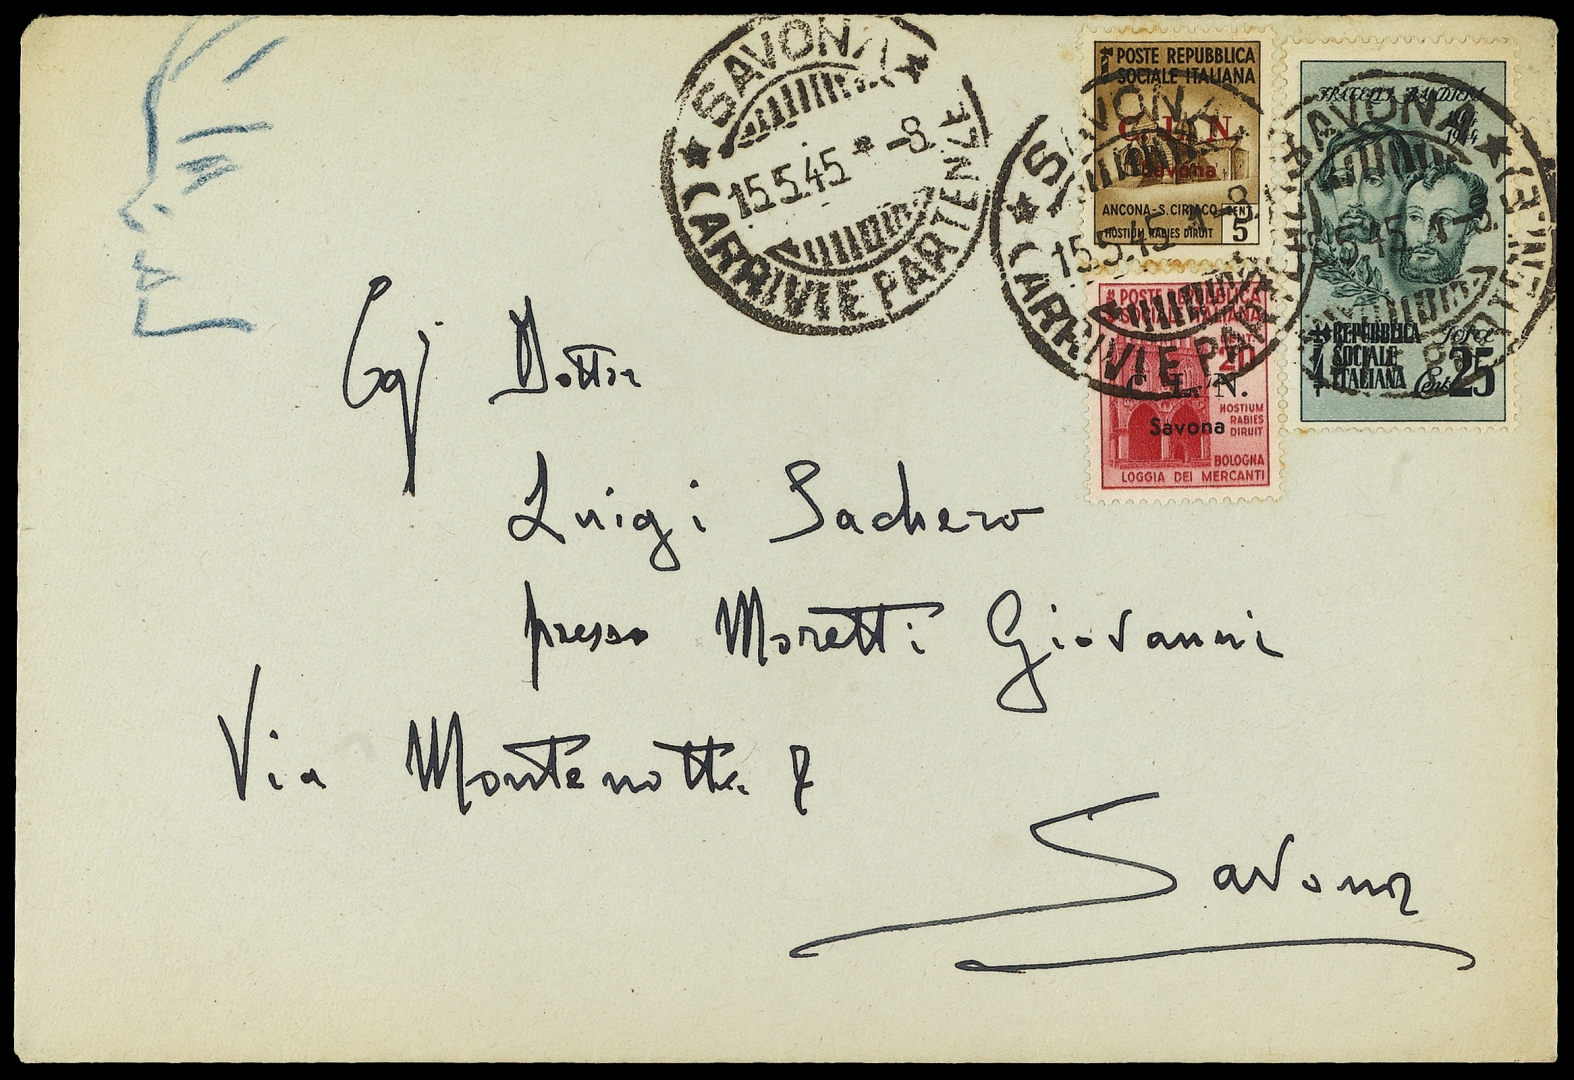 ★ SAVONA ★
15.5.45 * -8
(ARRIVI E PARTENZE
POSTE REPUBBLICA
SOCIALE ITALIANA
C. L. N.
Savona
ANCONA-S.CIRIACO
HOSTIUM RABIES DIRUIT
CENT
5
POSTE REPUBBLICA
SOCIALE ITALIANA
CENT
20
C. L. N.
Savona
HOSTIUM
RABIES
DIRUIT
BOLOGNA
LOGGIA DEI MERCANTI
FRATELLI BANDIERA
1844
1944
REPUBBLICA
SOCIALE
ITALIANA
Poste
Cent 25
★ SAVONA
15.5.45 * -8
(ARRIVI E PAR
SAVONA ★
15.5.45 * -8
Egj Dottor
Luigi Sachero
presso Moretti Giovanni
Via Montenotte 7
Savona